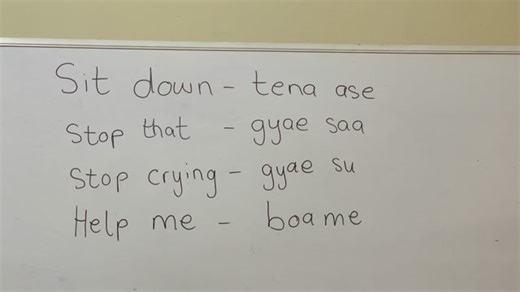 Sit down - tena ase
Stop that - gyae saa
Stop crying - gyae su
Help me - boa me